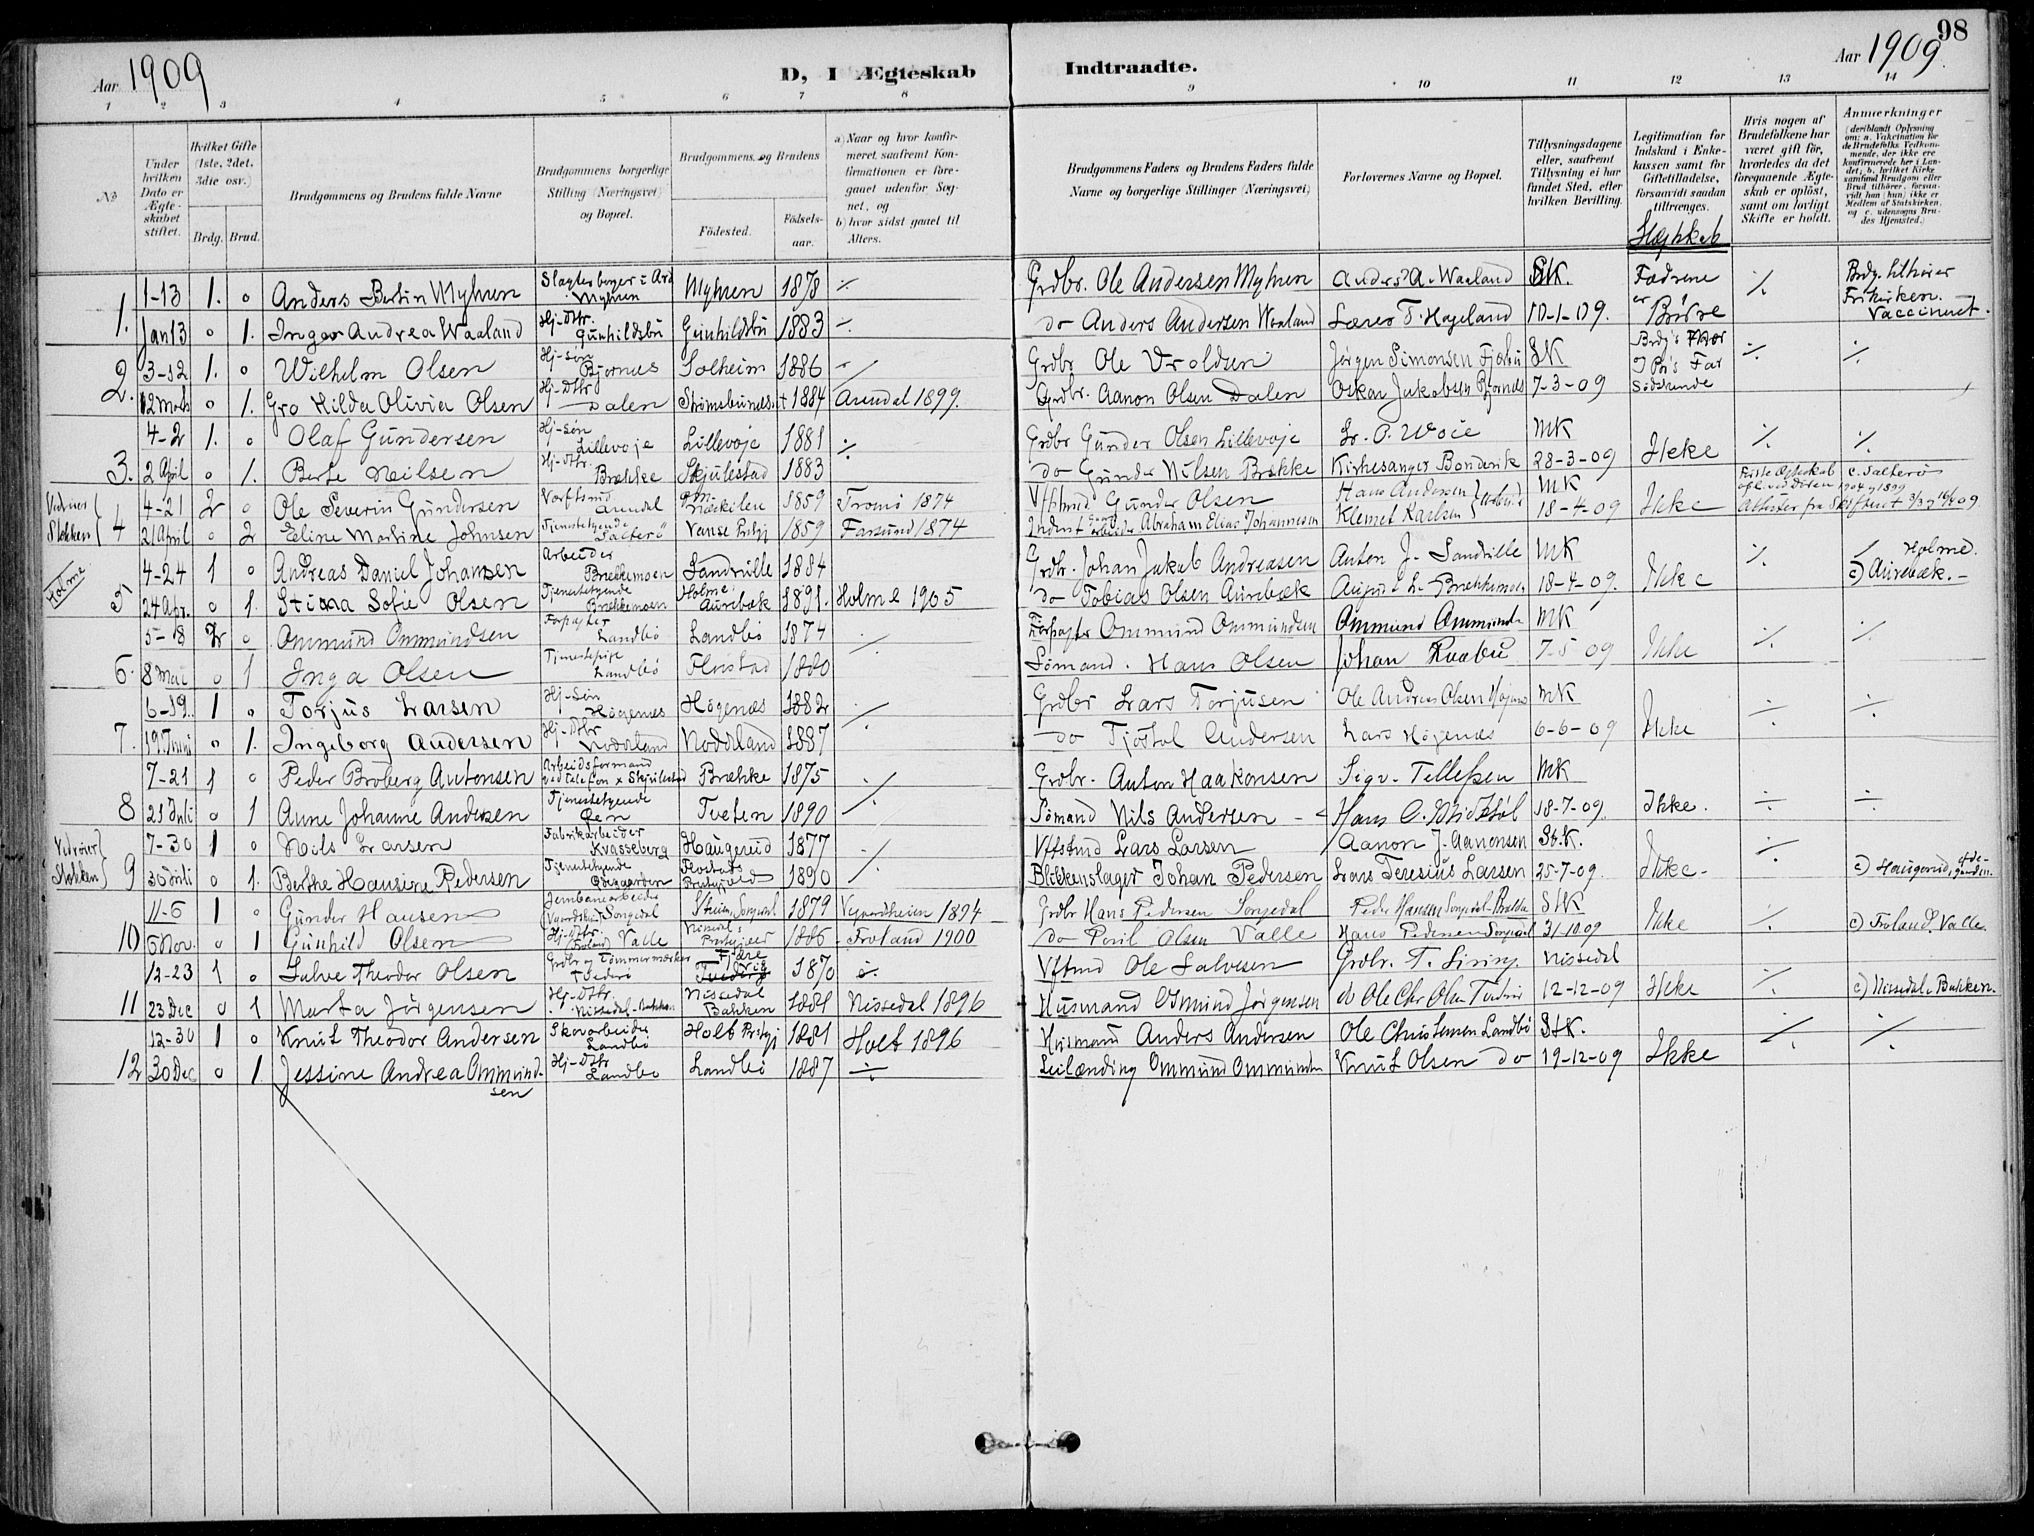 98
Aar 1909
D, I Ægteskab Indtraadte.
Aar 1909.
1 2 3 4 5 6 7 8 9 10 11 12 13 14
No
Under hvilken Dato er Ægteskabet stiftet.
Hvilket Gifte (1ste, 2det, 3die osv.)
Brdg. Brud.
Brudgommens og Brudens fulde Navne
Brudgommens borgerlige Stilling (Næringsvei) og Bopæl.
Brudgommens og Brudens
Fødested. Fødselsaar.
a) Naar og hvor konfirmeret, saafremt Konfirmationen er foregaaet udenfor Sognet, og
b) hvor sidst gaaet til Alters.
Brudgommens Faders og Brudens Faders fulde Navne og borgerlige Stillinger (Næringsvei)
Forlovernes Navne og Bopæl.
Tillysningsdagene eller, saafremt Tillysning ei har fundet Sted, efter hvilken Bevilling.
Legitimation for Indskud i Enkekassen samt for Giftetilladelse, forsaavidt saadan tiltrænges.
Slægtskab
Hvis nogen af Brudefolkene har været gift før, hvorledes da det foregaaende Ægteskab er opløst, samt om lovligt Skifte er holdt.
Anmerkninger (deriblandt Oplysning om: a. Vakcination for de Brudefolks Vedkommende, der ikke ere konfirmerede her i Landet; b. hvilket Kirkesamfund Brudgom eller Brud tilhører, forsaavidt han (hun) ikke er Medlem af Statskirken, og c. udensogns Brudes Hjemsted.)
1. 1-13 1. o Anders Bertin Myhren Slagterborger i Ard Myhren Myhren 1878 ./. Grdbr. Ole Andersen Myhren Anders A. Waaland SK. Fædrene ./. Brdg. tilhører Frikirken.
Jan 13 o 1. Inger Andrea Waaland Hj-Dtr. Gunhildsbu Gunhildsbu 1883 ./. do Anders Andersen Waaland Lærer T. Hageland 10-1-09. er Brødre Vaccineret.
2. 3-12 1. o Wilhelm Olsen Hj-Søn Bjornes Solheim 1886 ./. Grdbr Ole Uroldsen Jørgen Simonsen SK Brdg's ./. ./.
12 Marts o 1. Gro Hilda Olivia Olsen Hj-Dtr Dalen 1884 Arendal 1899. Grdbr. Aanon Olsen Dalen Oskar Jakobsen Bjornes 7-3-09 Far Södskende
3. 4-2 1. o Olaf Gundersen Hj-Søn Lillevoje Lillevoje 1881 ./. Grdbr Gunder Olsen Lillevoje MK Ikke ./. ./.
2 April o 1. Berte Nilsen Hj-Dtr. Brække Skjulestad 1883 do Gunder Nilsen Brække Kirkesanger Bonderik 28-3-09
Vedrører Stokken 4 4-21 2 o Ole Severin Gundersen Værftsmd Arendal Næskilen 1859 Tromö 1874 Gunder Olsen Hans Andersen MK Ikke Første Ægteskab c. Salterö
21 April o 2 Eline Martine Johnsen Tjenestepige Salterö Vanse Prstgj 1859 Farsund 1874 Abraham Elias Johannesen Klemet Karlsen Arendal 18-4-09 opl. ved Döden 1904 og 1899 Attester fra Skifteret
Holme 5 4-24 1 o Andreas Daniel Johansen Arbeider Brekkemoen Sandville 1884 Grdbr. Johan Jakob Andreasen Anton J. Sandville MK Ikke ./. Holme.
24 Apr. o 1. Stina Sofie Olsen Tjenestepige Brekkemoen Holme Aurebæk 1891. Holme 1905 do Tobias Olsen Aurebæk Brekkemoen 18-4-09. c) Aurebæk.
6. 5-8 2 o Ommund Ommundsen Forpagter Landbö Landbö 1874 ./. Forpagter Ommund Ommundsen Ommund Ommunds. MK Ikke ./. ./.
8 Mai o 1 Inga Olsen Tjenestepige Landbö Flostad 1880 Sømand. Hans Olsen Johan 7-5 09
7. 6-19. 1 o Torjus Larsen Hj-Søn Högenes Högenes 1882 ./. Grdbr Lars Torjusen Ole Andreas Olsen MK Ikke ./. ./.
19. Juni o 1. Ingeborg Andersen Hj-Dtr Noddland Noddland 1887 do Tjöstol Andersen Lars Högenes 6-6-09
8 7-21 1 o Peder Broberg Antonsen Arbeidsformand ved telefon x Skjulestad Brække 1875 ./. Grdbr. Anton Haakonsen Sigv. Tellefsen MK Ikke. ./. ./.
21 Juli o 1 Anne Johanne Andersen Tjenestepige Tveten 1890 Sømand Nils Andersen Hans 18-7-09.
Vedrører Stokken 9 7-30 1 o Nils Larsen Fabrikarbeider Kvasseberg Haugerud 1877 ./. Lars Larsen Aanon J. Aanonsen St.K. Ikke. ./.
30 Juli o 1. Berthe Hansine Pedersen Tjenestepige Flostads Prstgjeld 1890 Blikkenslager Johan Pedersen Lars Teresius Larsen 25-7-09.
10 11-6 1 o Gunder Hansen Jernbanearbeider Songedal 1879 Vegaardsheien 1894 Grdbr Hans Pedersen Songedal Peder Hansen StK Ikke ./. c) Froland, Valle
6 Nov. o 1 Gunhild Olsen Hj-Dtr. Froland Valle Nissedal 1886 Froland 1900 do Olsen Valle Hans Pedersen 31-10 09
11 12-23 1 o Salve Theodor Olsen Grdbr og Tømmermærker 1870 Ole Salvesen Grdbr. T. Nissedal Ikke ./.
23 Dec o 1 Marta Jörgensen Hj-Dtr. Nissedal-Bakken Nissedal Bakken 1881 Nissedal 1896 Husmand Osmund Jörgensen do Ole Chr Olsen 12-12-09 c) Nissedal. Bakken.
12 12-30 1 o Knut Theodor Andersen Skovarbeider Landbö Holt Prstgj 1881 Holt 1896 Husmand Anders Andersen Ole Christensen Landbö StK. Ikke ./. ./.
30 Dec o 1 Jessine Andrea Ommundsen Hj-Dtr Landbö Landbö 1887 ./. Leilænding Ommund Ommundsen Knut Olsen do 19-12-09